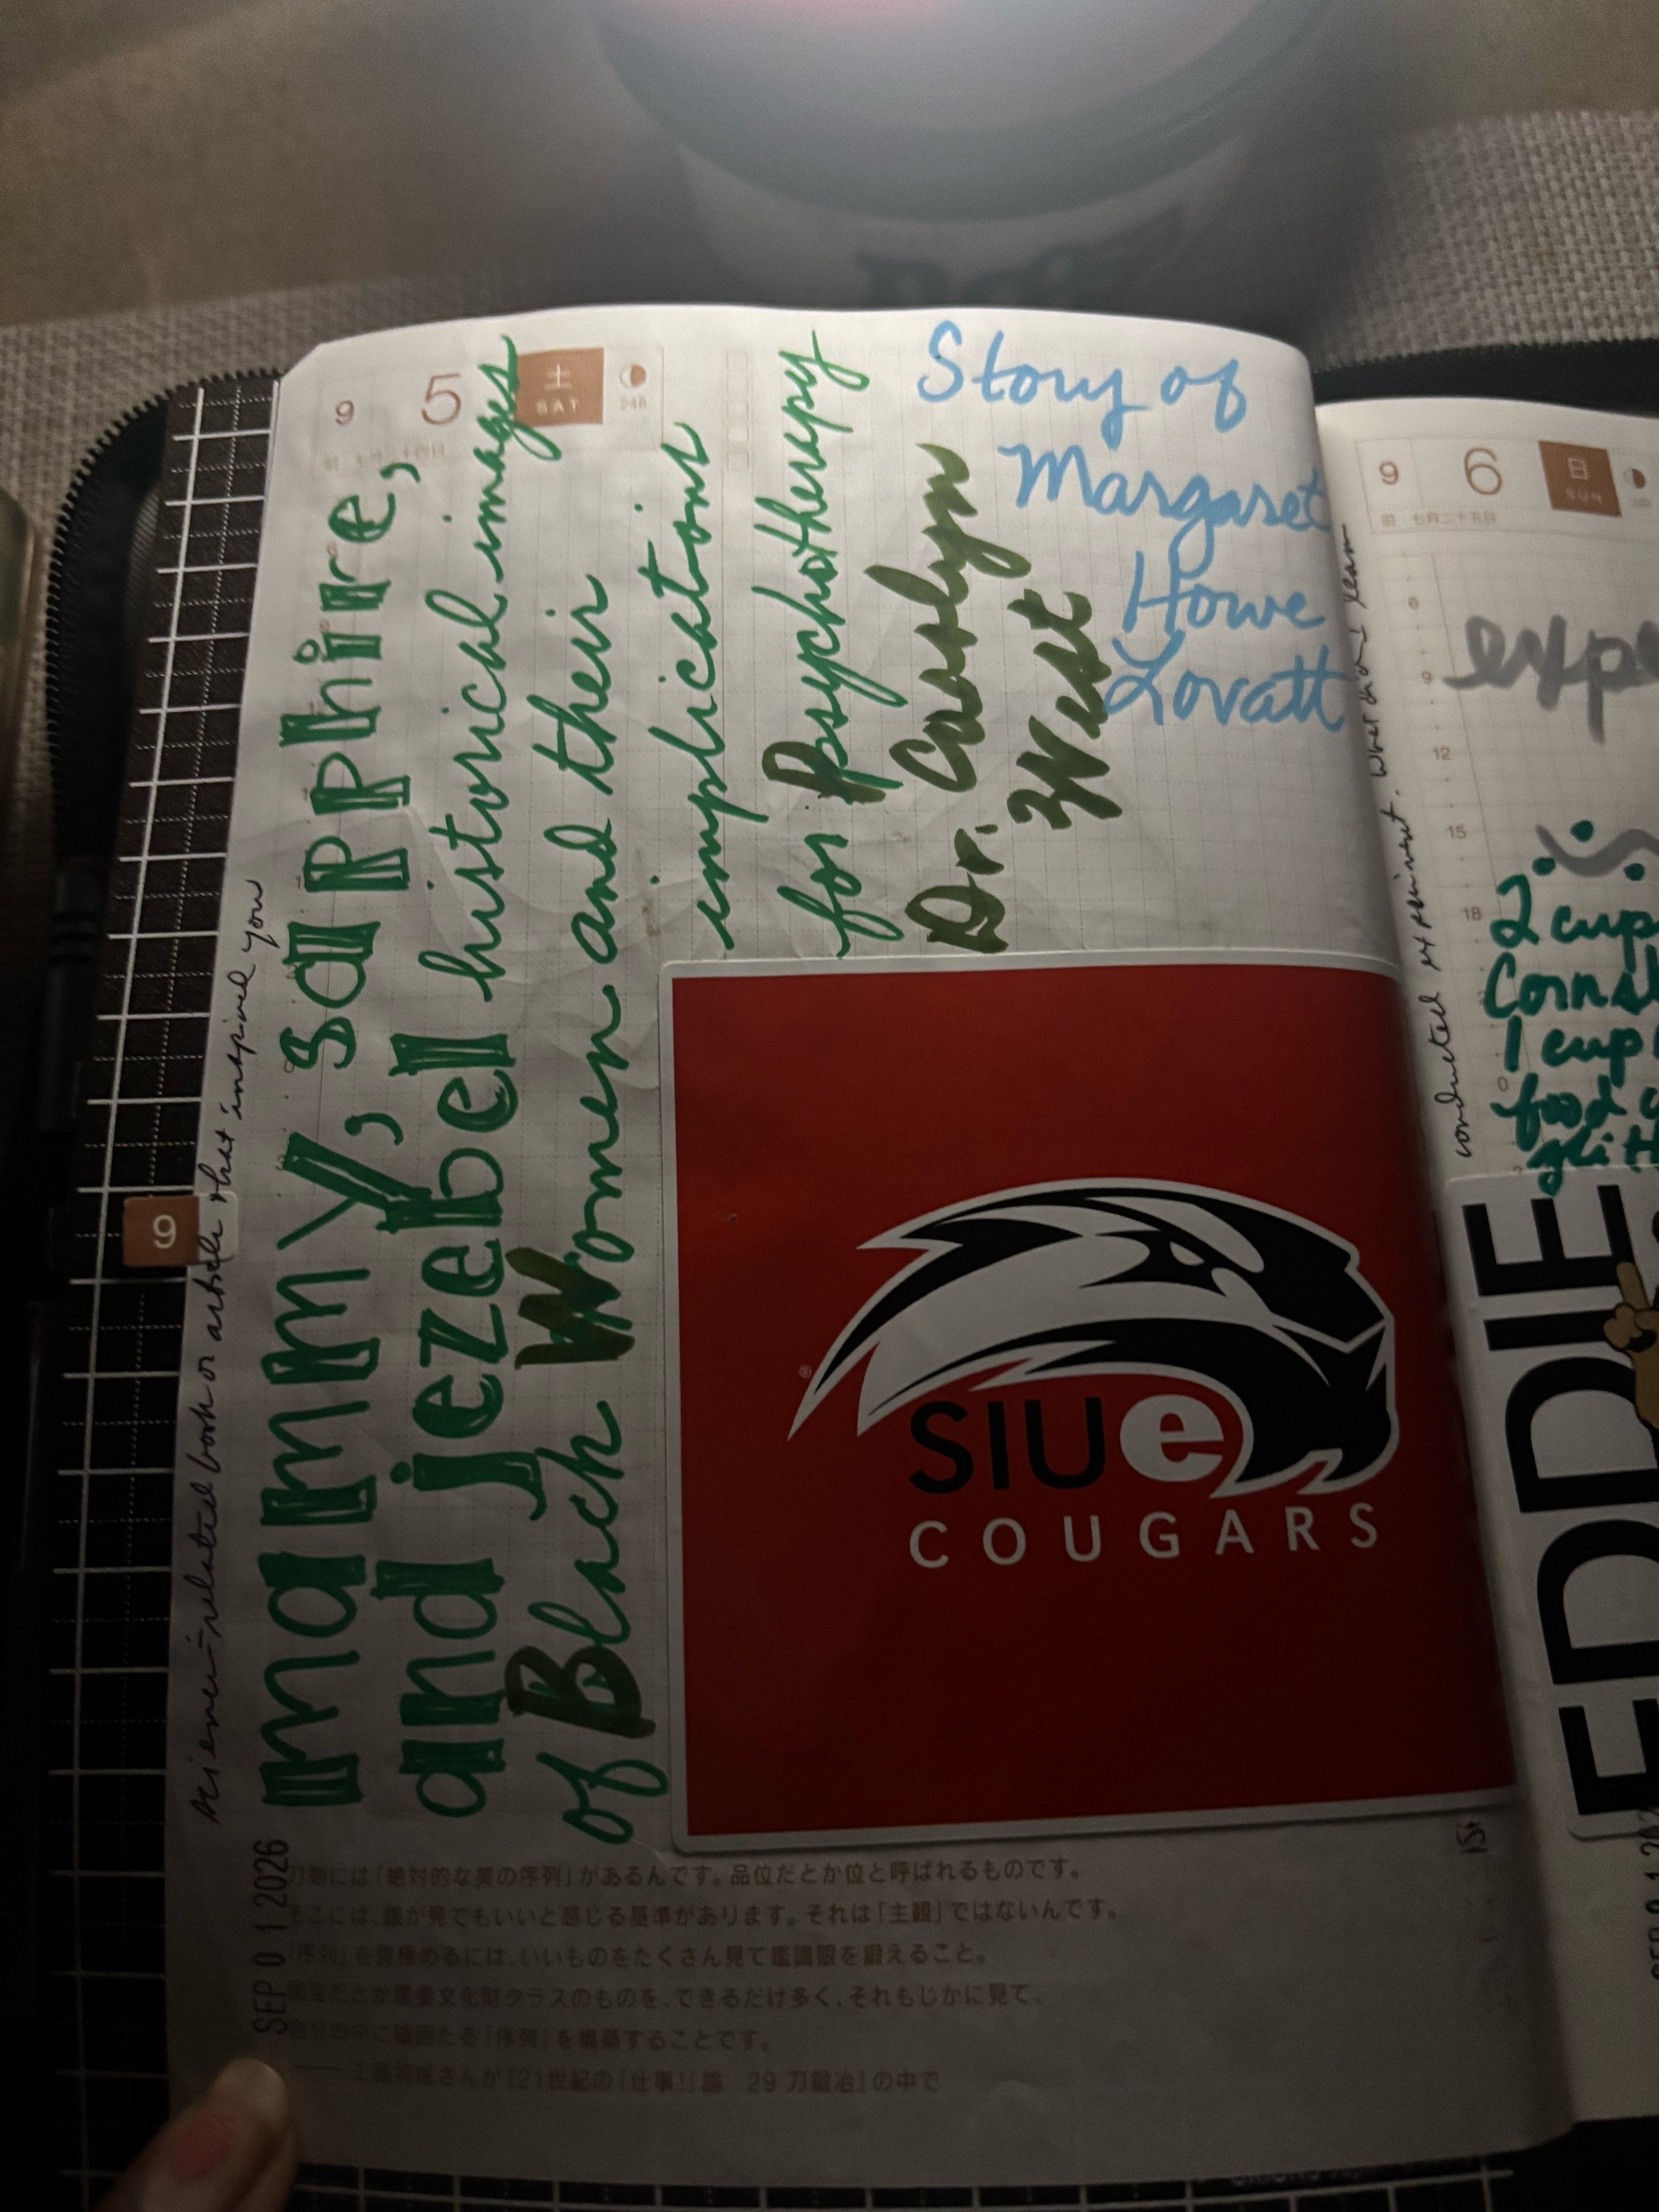 9 5 土 SAT
248
science-related book or article that inspired you
mammy, sapphire,
and jezebel historical images
of Black Women and their
implications
for Psychotherapy
Dr. Carolyn
West
Story of
Margaret
Howe
Lovatt
SIUe
COUGARS
®
9
SEP 0 1 2026
刀剣には「絶対的な美の序列」があるんです。品位だとか位と呼ばれるものです。
そこには、誰が見てもいいと感じる基準があります。それは「主観」ではないんです。
「序列」を見極めるには、いいものをたくさん見て鑑識眼を鍛えること。
国宝だとか重要文化財クラスのものを、できるだけ多く、それもじかに見て、
自分の中に確固たる「序列」を構築することです。
さんが『21世紀の「仕事!」論 29 刀鍛冶』の中で
9 6 日 SUN
旧 七月二十五日
6
9
12
15
18
conducted experiment. What did I learn
2 cup
1 cup
food
EDDIE